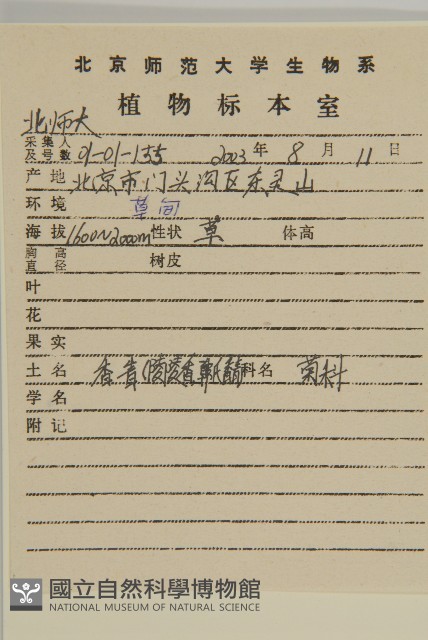 北京师范大学生物系
植物标本室
北师大
采集人及号数 01-01-155 2003年 8月 11日
产地 北京市门头沟区东灵山
环境 草甸
海拔 1600~2000m 性状 草 体高
胸高直径 树皮
叶
花
果实
土名 香青 科名 菊科
学名
附记
國立自然科學博物館
NATIONAL MUSEUM OF NATURAL SCIENCE